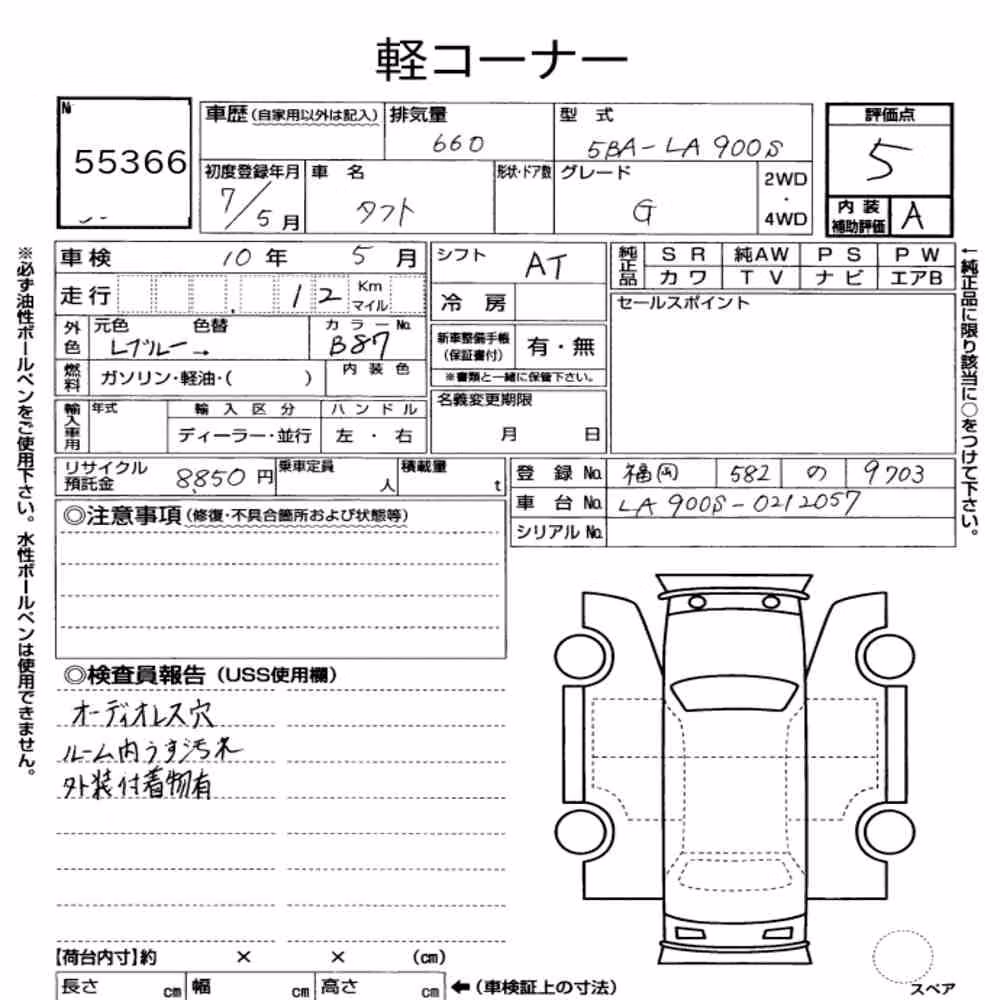 軽コーナー
№
55366
車歴(自家用以外は記入)
排気量
660
型 式
5BA-LA900S
評価点
5
内装
補助評価
A
初度登録年月
7/5月
車 名
タフト
形状・ドア数
グレード
G
2WD
・
4WD
車検 10年 5月
走行 . 12 Km
マイル
シフト
AT
冷 房
純正品
SR 純AW PS PW
カワ TV ナビ エアB
セールスポイント
外色
元色 色替
Lブルー→
カラーNo.
B87
燃料
ガソリン・軽油・( )
内装色
新車整備手帳
(保証書付)
有・無
※書類と一緒に保管下さい。
名義変更期限
月 日
輸入車用
年式
輸入区分
ディーラー・並行
ハンドル
左 ・ 右
リサイクル
預託金
8,850円
乗車定員
人
積載量
t
登 録 No. 福岡 582 の 9703
車 台 No. LA900S-0212057
シリアル No.
◎注意事項(修復・不具合箇所および状態等)
◎検査員報告(USS使用欄)
オーディオレス穴
ルーム内うす汚れ
外装付着物有
【荷台内寸】約 × × (cm)
長さ cm 幅 cm 高さ cm ←(車検証上の寸法)
スペア
※必ず油性ボールペンをご使用下さい。水性ボールペンは使用できません。
←純正品に限り該当に○をつけて下さい。